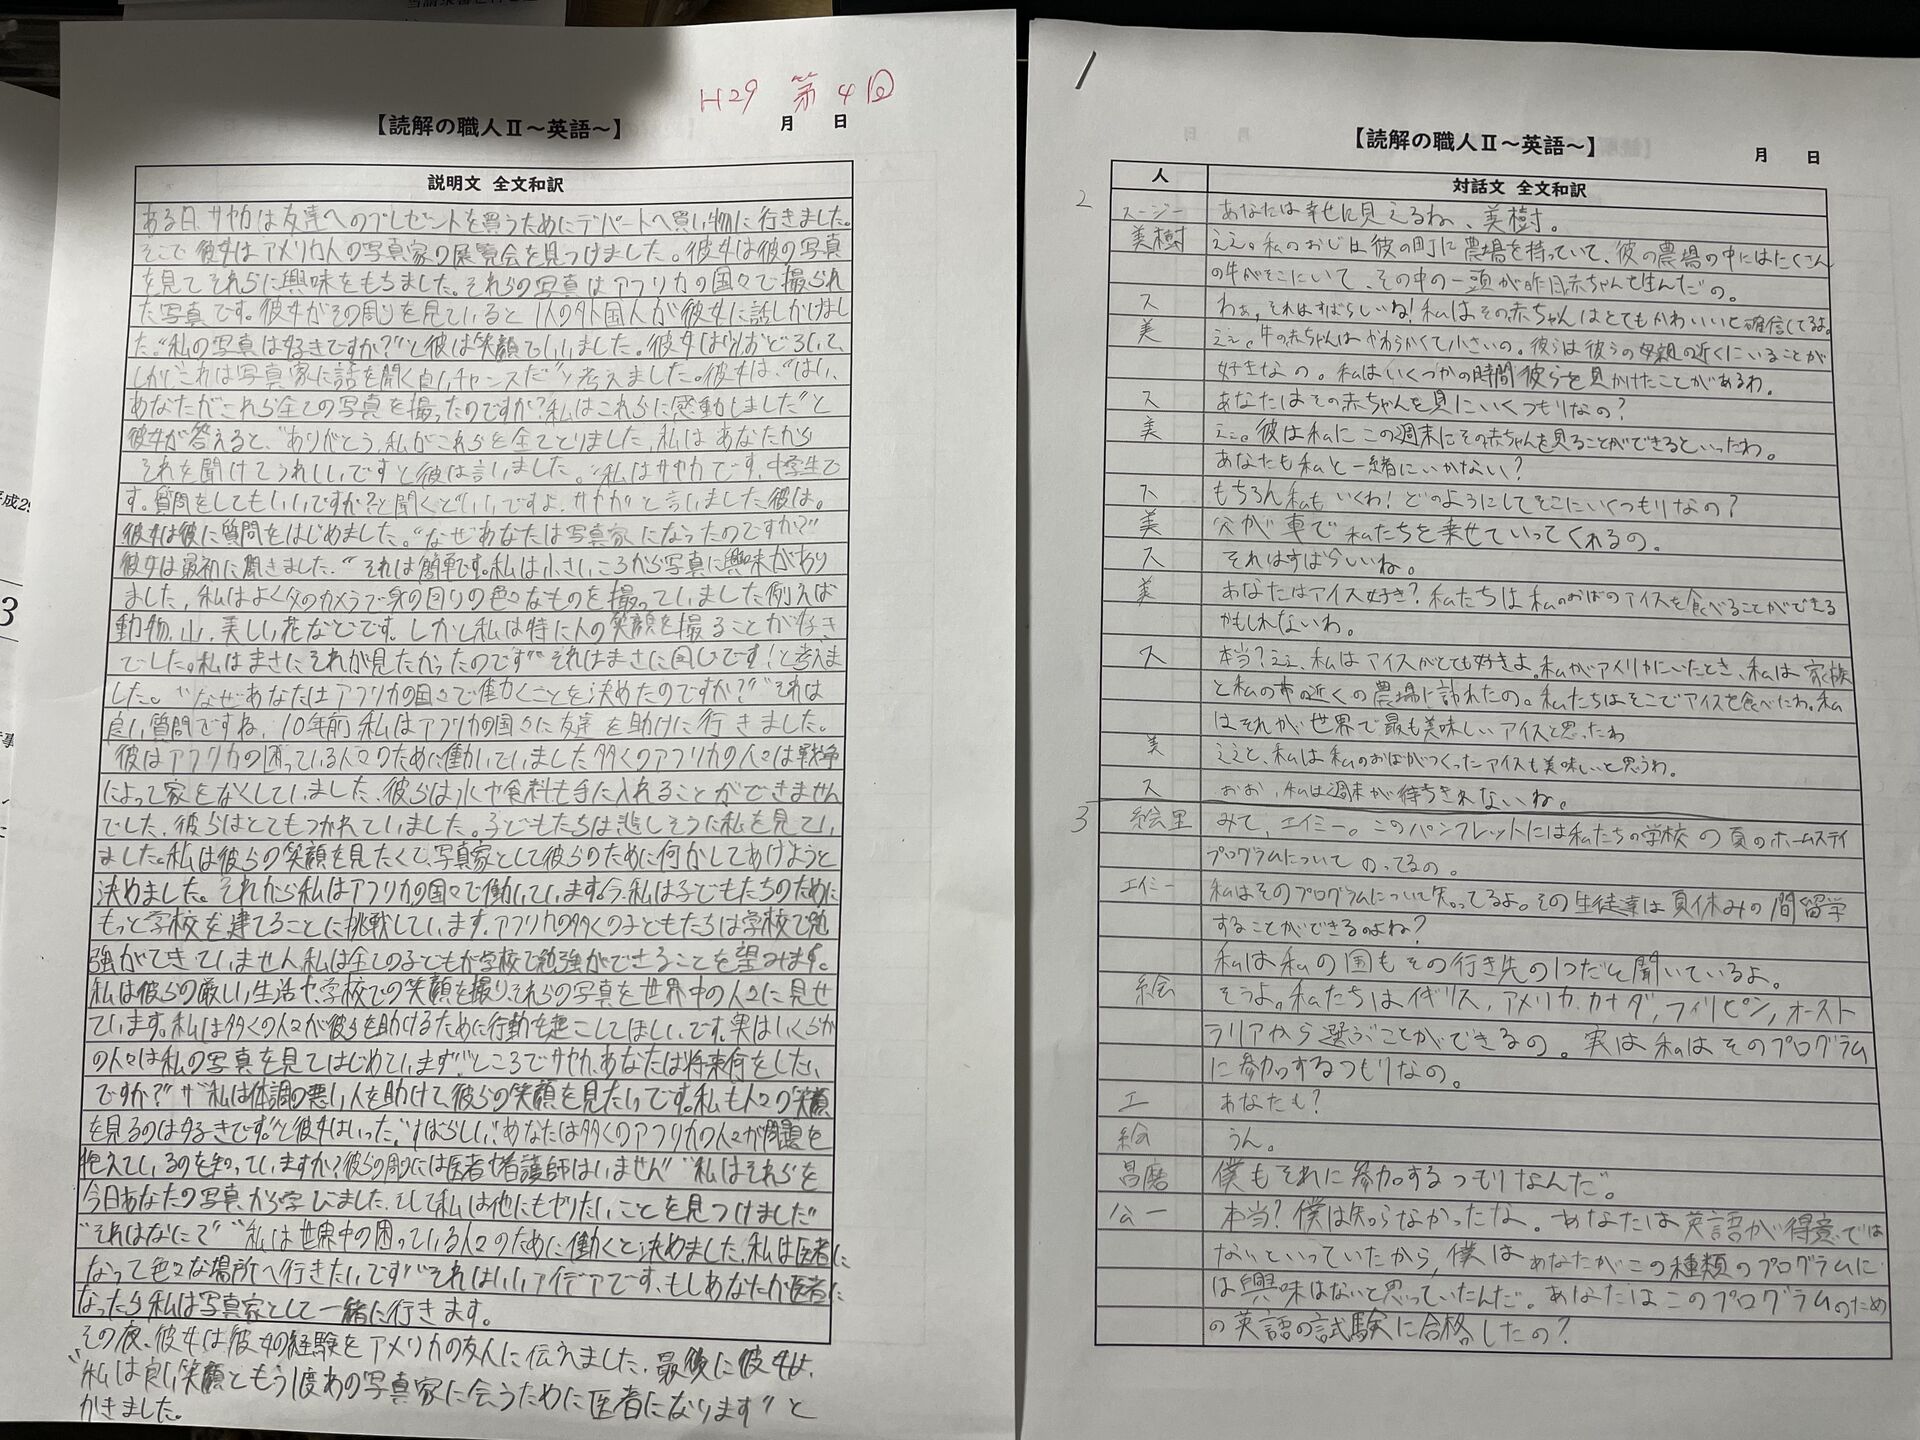 H29 第4回
【読解の職人Ⅱ～英語～】
月 日
説明文 全文和訳
ある日、サヤカは友達へのプレゼントを買うためにデパートへ買い物に行きました。
そこで彼女はアメリカ人の写真家の展覧会を見つけました。彼女は彼の写真
を見てそれらに興味をもちました。それらの写真はアフリカの国々で撮られ
た写真です。彼女がその周りを見ていると1人の外国人が彼女に話しかけまし
た。"私の写真は好きですか?"と彼は笑顔でいいました。彼女は少しおどろいて、
しかし"これは写真家に話を聞く良いチャンスだ"と考えました。彼女は、"はい、
あなたがこれら全ての写真を撮ったのですか?私はこれらに感動しました"と
彼女が答えると、"ありがとう、私がこれらを全てとりました、私はあなたから
それを聞けてうれしいですと彼は言いました。"私はサヤカです、中学生で
す。質問をしてもいいですか?と聞くと"いいですよ、サヤカ"と言いました彼は。
彼女は彼に質問をはじめました。"なぜあなたは写真家になったのですか?"
彼女は最初に聞きました。"それは簡単です。私は小さいころから写真に興味があり
ました、私はよく父のカメラで身の回りの色々なものを撮っていました例えば
動物、山、美しい花などです。しかし私は特に人の笑顔を撮ることが好き
でした。私はまさにそれが見たかったのです""それはまさに同じです!と考えま
した。"なぜあなたはアフリカの国々で働くことを決めたのですか?""それは
良い質問ですね、10年前私はアフリカの国々に友達を助けに行きました。
彼はアフリカの困っている人々のために働いていました多くのアフリカの人々は戦争
によって家をなくしていました、彼らは水や食料も手に入れることができません
でした、彼らはとてもつかれていました。子どもたちは悲しそうに私を見てい
ました。私は彼らの笑顔を見たくて、写真家として彼らのために何かしてあげようと
決めました。それから私はアフリカの国々で働いています。今、私は子どもたちのために
もっと学校を建てることに挑戦しています。アフリカの多くの子どもたちは学校で勉
強ができていません私は全ての子どもが学校で勉強ができることを望みます。
私は彼らの厳しい生活や、学校での笑顔を撮り、それらの写真を世界中の人々に見せ
ています。私は多くの人々が彼らを助けるために行動を起こしてほしいです。実はいくらか
の人々は私の写真を見てはじめています""ところでサヤカ、あなたは将来何をしたい
ですか?""私は体調の悪い人を助けて、彼らの笑顔を見たいです。私も人々の笑顔
を見るのは好きです。"と彼女はいった。"すばらしい"あなたは多くのアフリカの人々が問題を
抱えているのを知っていますか?彼らの周りには医者も看護師はいません""私はそれらを
今日あなたの写真から学びました、そして私は他にもやりたいことを見つけました"
"それはなにで""私は世界中の困っている人々のために働くと決めました、私は医者に
なって色々な場所へ行きたいです""それはいいアイデアです、もしあなたが医者に
なったら私は写真家として一緒に行きます。
その夜、彼女は彼女の経験をアメリカの友人に伝えました、最後に彼女は、
"私は良い笑顔ともう1度あの写真家に会うために医者になります"と
かきました。
1
【読解の職人Ⅱ～英語～】
月 日
人 対話文 全文和訳
2 スージー あなたは幸せに見えるね、美樹。
美樹 ええ。私のおじは彼の町に農場を持っていて、彼の農場の中にはたくさん
の牛がそこにいて、その中の一頭が昨日赤ちゃんを生んだの。
ス わぁ、それはすばらしいね!私はその赤ちゃんはとてもかわいいと確信してるよ。
美 ええ。牛の赤ちゃんはやわらかくて小さいの。彼らは彼らの母親の近くにいることが
好きなの。私はいくつかの時間彼らを見かけたことがあるわ。
ス あなたはその赤ちゃんを見にいくつもりなの?
美 ええ。彼は私にこの週末にその赤ちゃんを見ることができるといったわ。
あなたも私と一緒にいかない?
ス もちろん私もいくわ!どのようにしてそこにいくつもりなの?
美 父が車で私たちを乗せていってくれるの。
ス それはすばらしいね。
美 あなたはアイス好き?私たちは私のおばのアイスを食べることができる
かもしれないわ。
ス 本当?ええ、私はアイスがとても好きよ。私がアメリカにいたとき、私は家族
と私の市の近くの農場に訪れたの。私たちはそこでアイスを食べたわ。私
はそれが世界で最も美味しいアイスと思ったわ
美 ええと、私は私のおばがつくったアイスも美味しいと思うわ。
ス おお、私は週末が待ちきれないね。
3 絵里 みて、エイミー。このパンフレットには私たちの学校の夏のホームステイ
プログラムについてのってるの。
エイミー 私はそのプログラムについて知ってるよ。その生徒達は夏休みの間留学
することができるのよね?
私は私の国もその行き先の1つだと聞いているよ。
絵 そうよ。私たちはイギリス、アメリカ、カナダ、フィリピン、オースト
ラリアから選ぶことができるの。実は私はそのプログラム
に参加するつもりなの。
エ あなたも?
絵 うん。
昌磨 僕もそれに参加するつもりなんだ。
公一 本当?僕は知らなかったな。あなたは英語が得意では
ないといっていたから、僕はあなたがこの種類のプログラムに
は興味はないと思っていたんだ。あなたはこのプログラムのため
の英語の試験に合格したの?